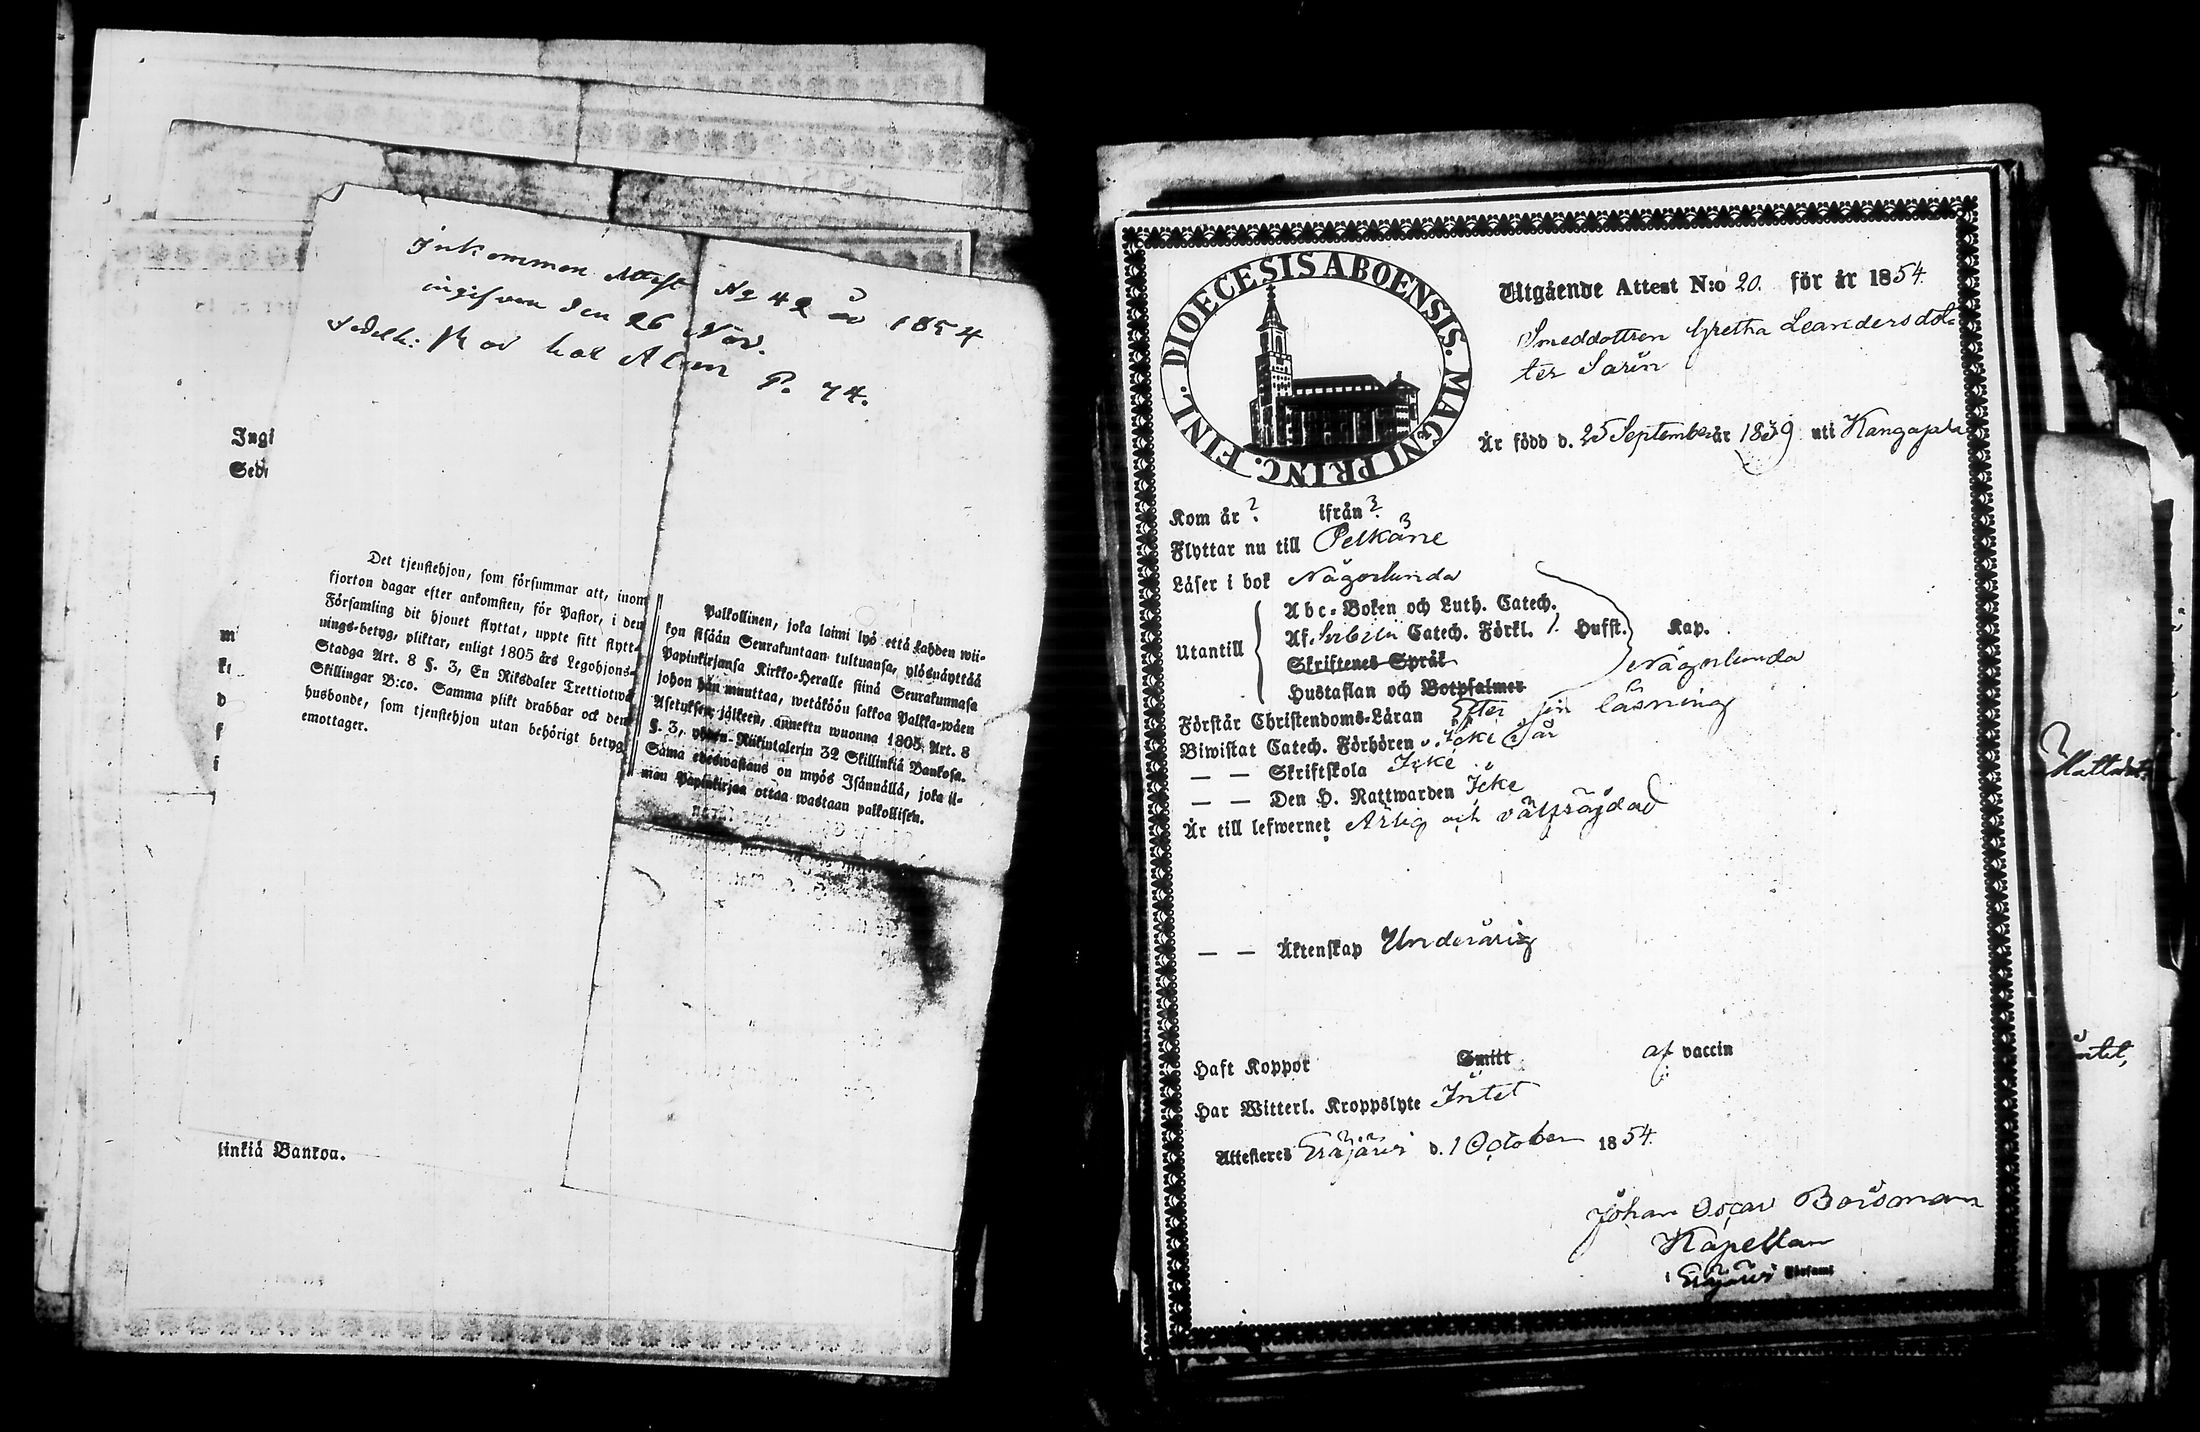 Inkommen Attest No 42 år 1854
ingifven den 26 Nov.
P. 74.
Ingi
Sedr
Det tjenstehjon, som försummar att, inom
fjorton dagar efter ankomsten, för Pastor, i den
Församling dit hjonet flyttat, uppte sitt flytt-
nings-betyg, pliktar, enligt 1805 års Legohjons-
Stadga Art. 8 §. 3, En Riksdaler Trettiotwå
Skillingar B:co. Samma plikt drabbar ock den
husbonde, som tjenstehjon utan behörigt betyg
emottager.
Palkollinen, joka laimi lyö että kahden wii-
kon sisään Seurakuntaan tultuansa, ylösnäyttää
Papinkirjansa Kirkko-Herralle siinä Seurakunnasa
johon hän muuttaa, wetäköön sakkoa Palkka-wäen
Asetuksen jälkeen, annettu wuonna 1805 Art. 8
§. 3, yhden Riikintalerin 32 Skillinkiä Bankosa.
Sama edeswastaus on myös Isännällä, joka il-
man Papinkirjaa ottaa wastaan palkollisen.
m
d
f
i
linkiä Bankoa.
DIOECESIS ABOENSIS. MAGNI PRINC. FINL.
Utgående Attest N:o 20. för år 1854.
Smeddottren Gretha Leandersdot-
ter Sarin
Är född d. 25 September år 1839 uti Kangasala
Kom år ? ifrån ?
Flyttar nu till Pelkäne
Läser i bok Någorlunda
Utantill
Abc-Boken och Luth. Catech.
Af Svebelii Catech. Förkl. 1. Hufst. Kap.
Skriftenes Språk
Någorlunda
Hustaflan och Botpsalmer
Förstår Christendoms-Läran Efter sin läsning
Biwistat Catech. Förhören icke i år
— — Skriftskola Icke
— — Den H. Nattwarden Icke
Är till lefwernet Ärlig och välfrägdad
— — Äktenskap Underårig
Haft Koppor Smitt af vaccin
Har Witterl. Kroppslyte Intet
Attesteres Eräjärvi d. 1 October 1854.
Johan Oscar Boisman
Kapellan
i Eräjärvi Församl